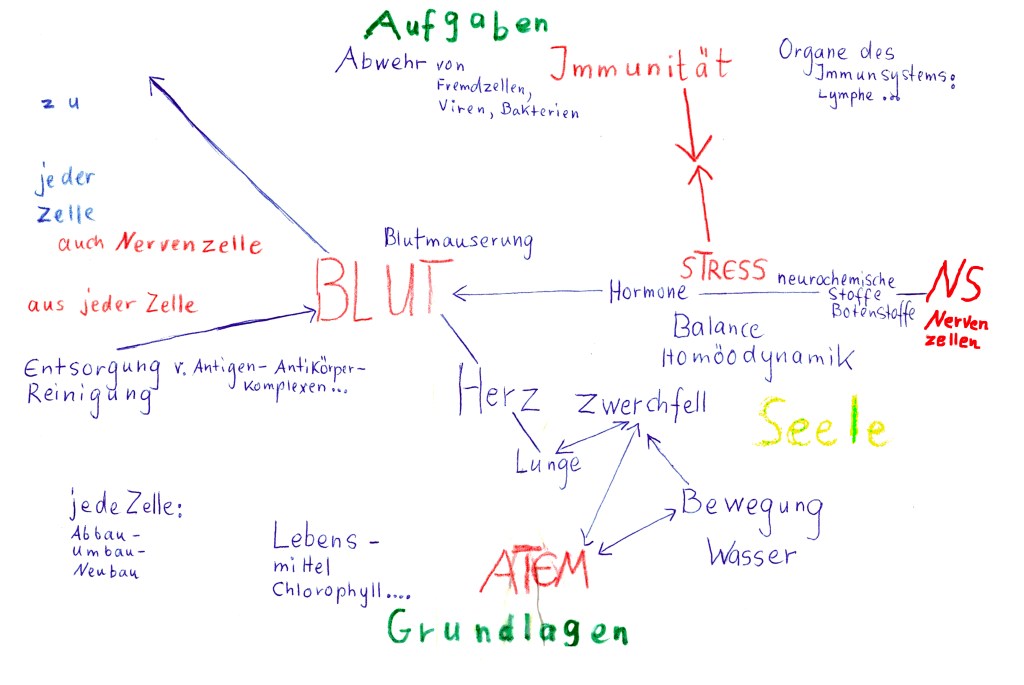 Aufgaben
Abwehr von
Fremdzellen,
Viren, Bakterien
Immunität
Organe des
Immunsystems:
Lymphe ...
zu
jeder
Zelle
auch Nervenzelle
aus jeder Zelle
Entsorgung v. Antigen-Antikörper-
Komplexen...
Reinigung
Blutmauserung
BLUT
STRESS
Hormone
neurochemische
Stoffe
Botenstoffe
NS
Nerven
zellen
Balance
Homöodynamik
Herz
Zwerchfell
Seele
Lunge
jede Zelle:
Abbau-
Umbau-
Neubau
Lebens-
mittel
Chlorophyll....
Bewegung
Wasser
ATEM
Grundlagen